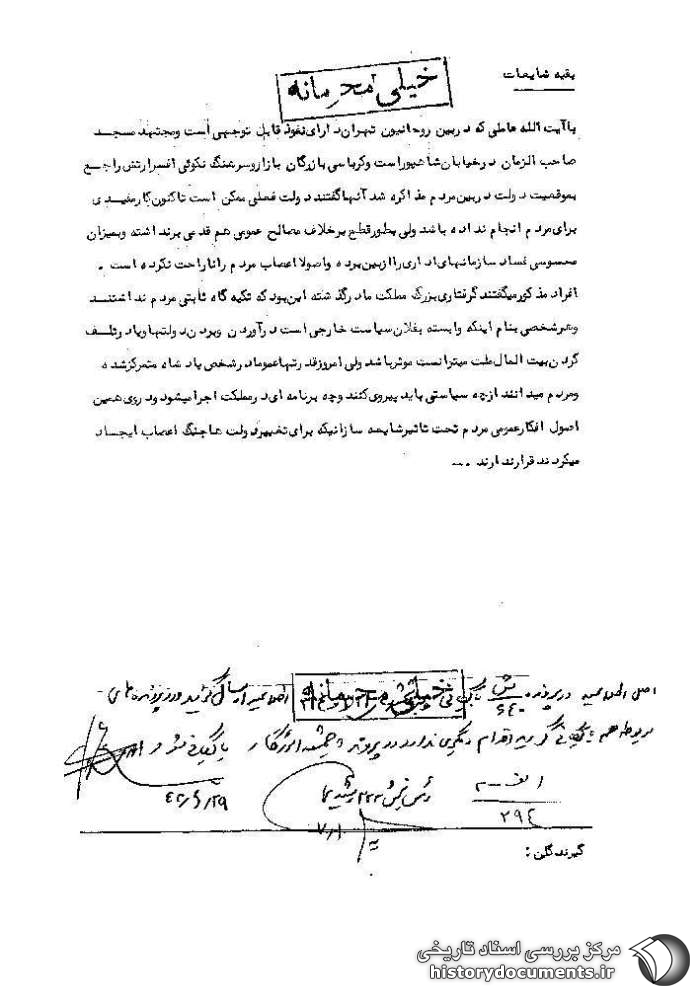 بقیه شایعات
خیلی محرمانه
با آیت الله عاملی که در بین روحانیون تهران دارای نفوذ قابل توجهی است و مجتهد مسجد
صاحب الزمان در خیابان شاهپور است و کرباسی بازرگان بازار و سرهنگ نکوئی افسر ارتش راجع
بموقعیت دولت در بین مردم مذاکره شد آنها گفتند دولت فعلی ممکن است تاکنون کار مفیدی
برای مردم انجام نداده باشد ولی بطور قطع برخلاف مصالح عمومی هم قدمی برنداشته و بمیزان
محسوسی فساد سازمانهای اداری را از بین برده و اصولا اعصاب مردم را ناراحت نکرده است .
افراد مذکور میگفتند گرفتاری بزرگ مملکت ما در گذشته این بود که تکیه گاه ثابتی مردم نداشتند
و هر شخصی بنام اینکه وابسته بفلان سیاست خارجی است در آوردن و بردن دولتها و یا در تلف
کردن بیت المال ملت میتوانست موثر باشد ولی امروز قدرتها عموما در شخص پادشاه متمرکز شده
و مردم میدانند از چه سیاستی باید پیروی کنند و چه برنامه ای در مملکت اجرا میشود و در روی همین
اصول افکار عمومی مردم تحت تاثیر شایعه سازانیکه برای تغییر دولت ها جنگ اعصاب ایجاد
میکردند قرار ندارند ...
اصل اطلاعیه در پرونده
خیلی محرمانه
اطلاعیه ارسال گردید و در پرونده های
مربوطه هم بایگانی گردید اقدام دیگری ندارد در پرونده
بایگانی شود
۲۹۴
گیرندگان :
مرکز بررسی اسناد تاریخی
historydocuments.ir